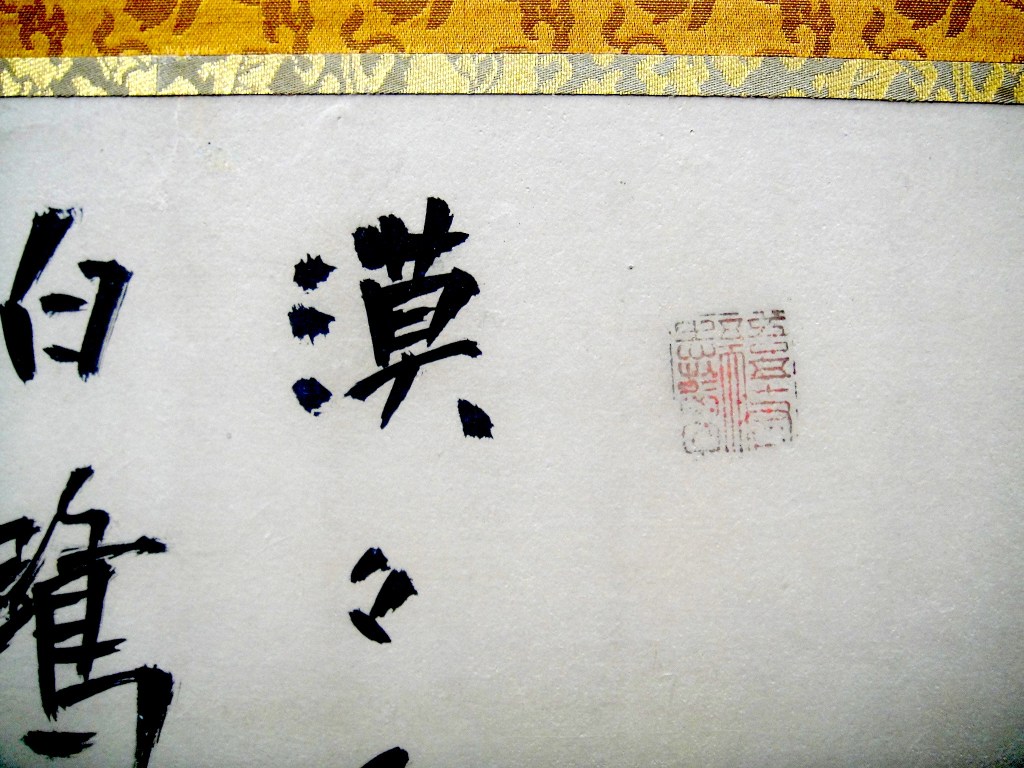 漠々
白鷺